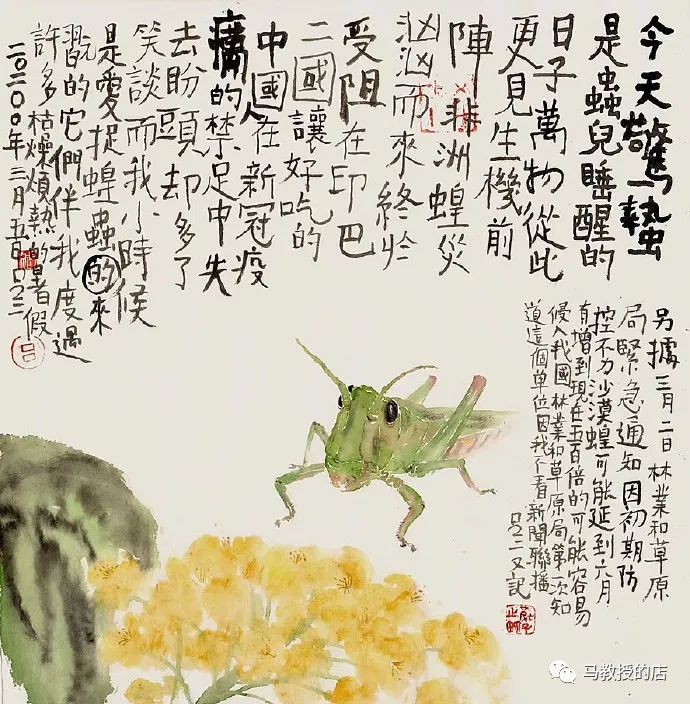 今天驚蟄
是蟲兒睡醒的
日子萬物從此
更見生機前
陣非洲蝗災
汹汹而來終於
受阻在印巴
二國讓好吃的
中國人在新冠疫
癘的禁足中失
去盼頭却多了
笑談而我小時候
是愛捉蝗蟲的來
翫的它們伴我度過
許多枯燥煩熱的暑假
二〇二〇年三月五日
另據三月二日林業和草原
局緊急通知因初期防
控不力沙漠蝗可能延到六月
有增到現在五百倍的可能容易
侵入我國林業和草原局第一次知
道這個單位因我不看新聞聯播
呂二又記
马教授的店